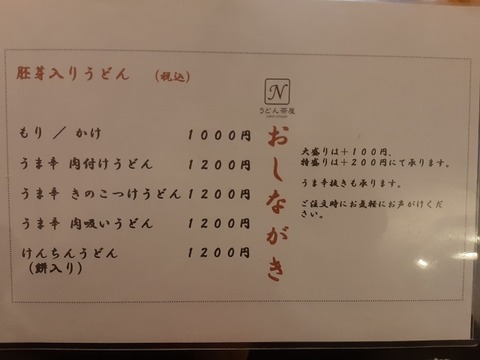 胚芽入りうどん （税込）
もり ／ かけ １０００円
うま辛 肉付けうどん １２００円
うま辛 きのこつけうどん １２００円
うま辛 肉吸いうどん １２００円
けんちんうどん １２００円
（餅入り）
N
うどん茶屋
おしながき
大盛りは＋１００円、
特盛りは＋２００円にて承ります。
うま辛抜きも承ります。
ご注文時にお気軽にお声がけくだ
さい。